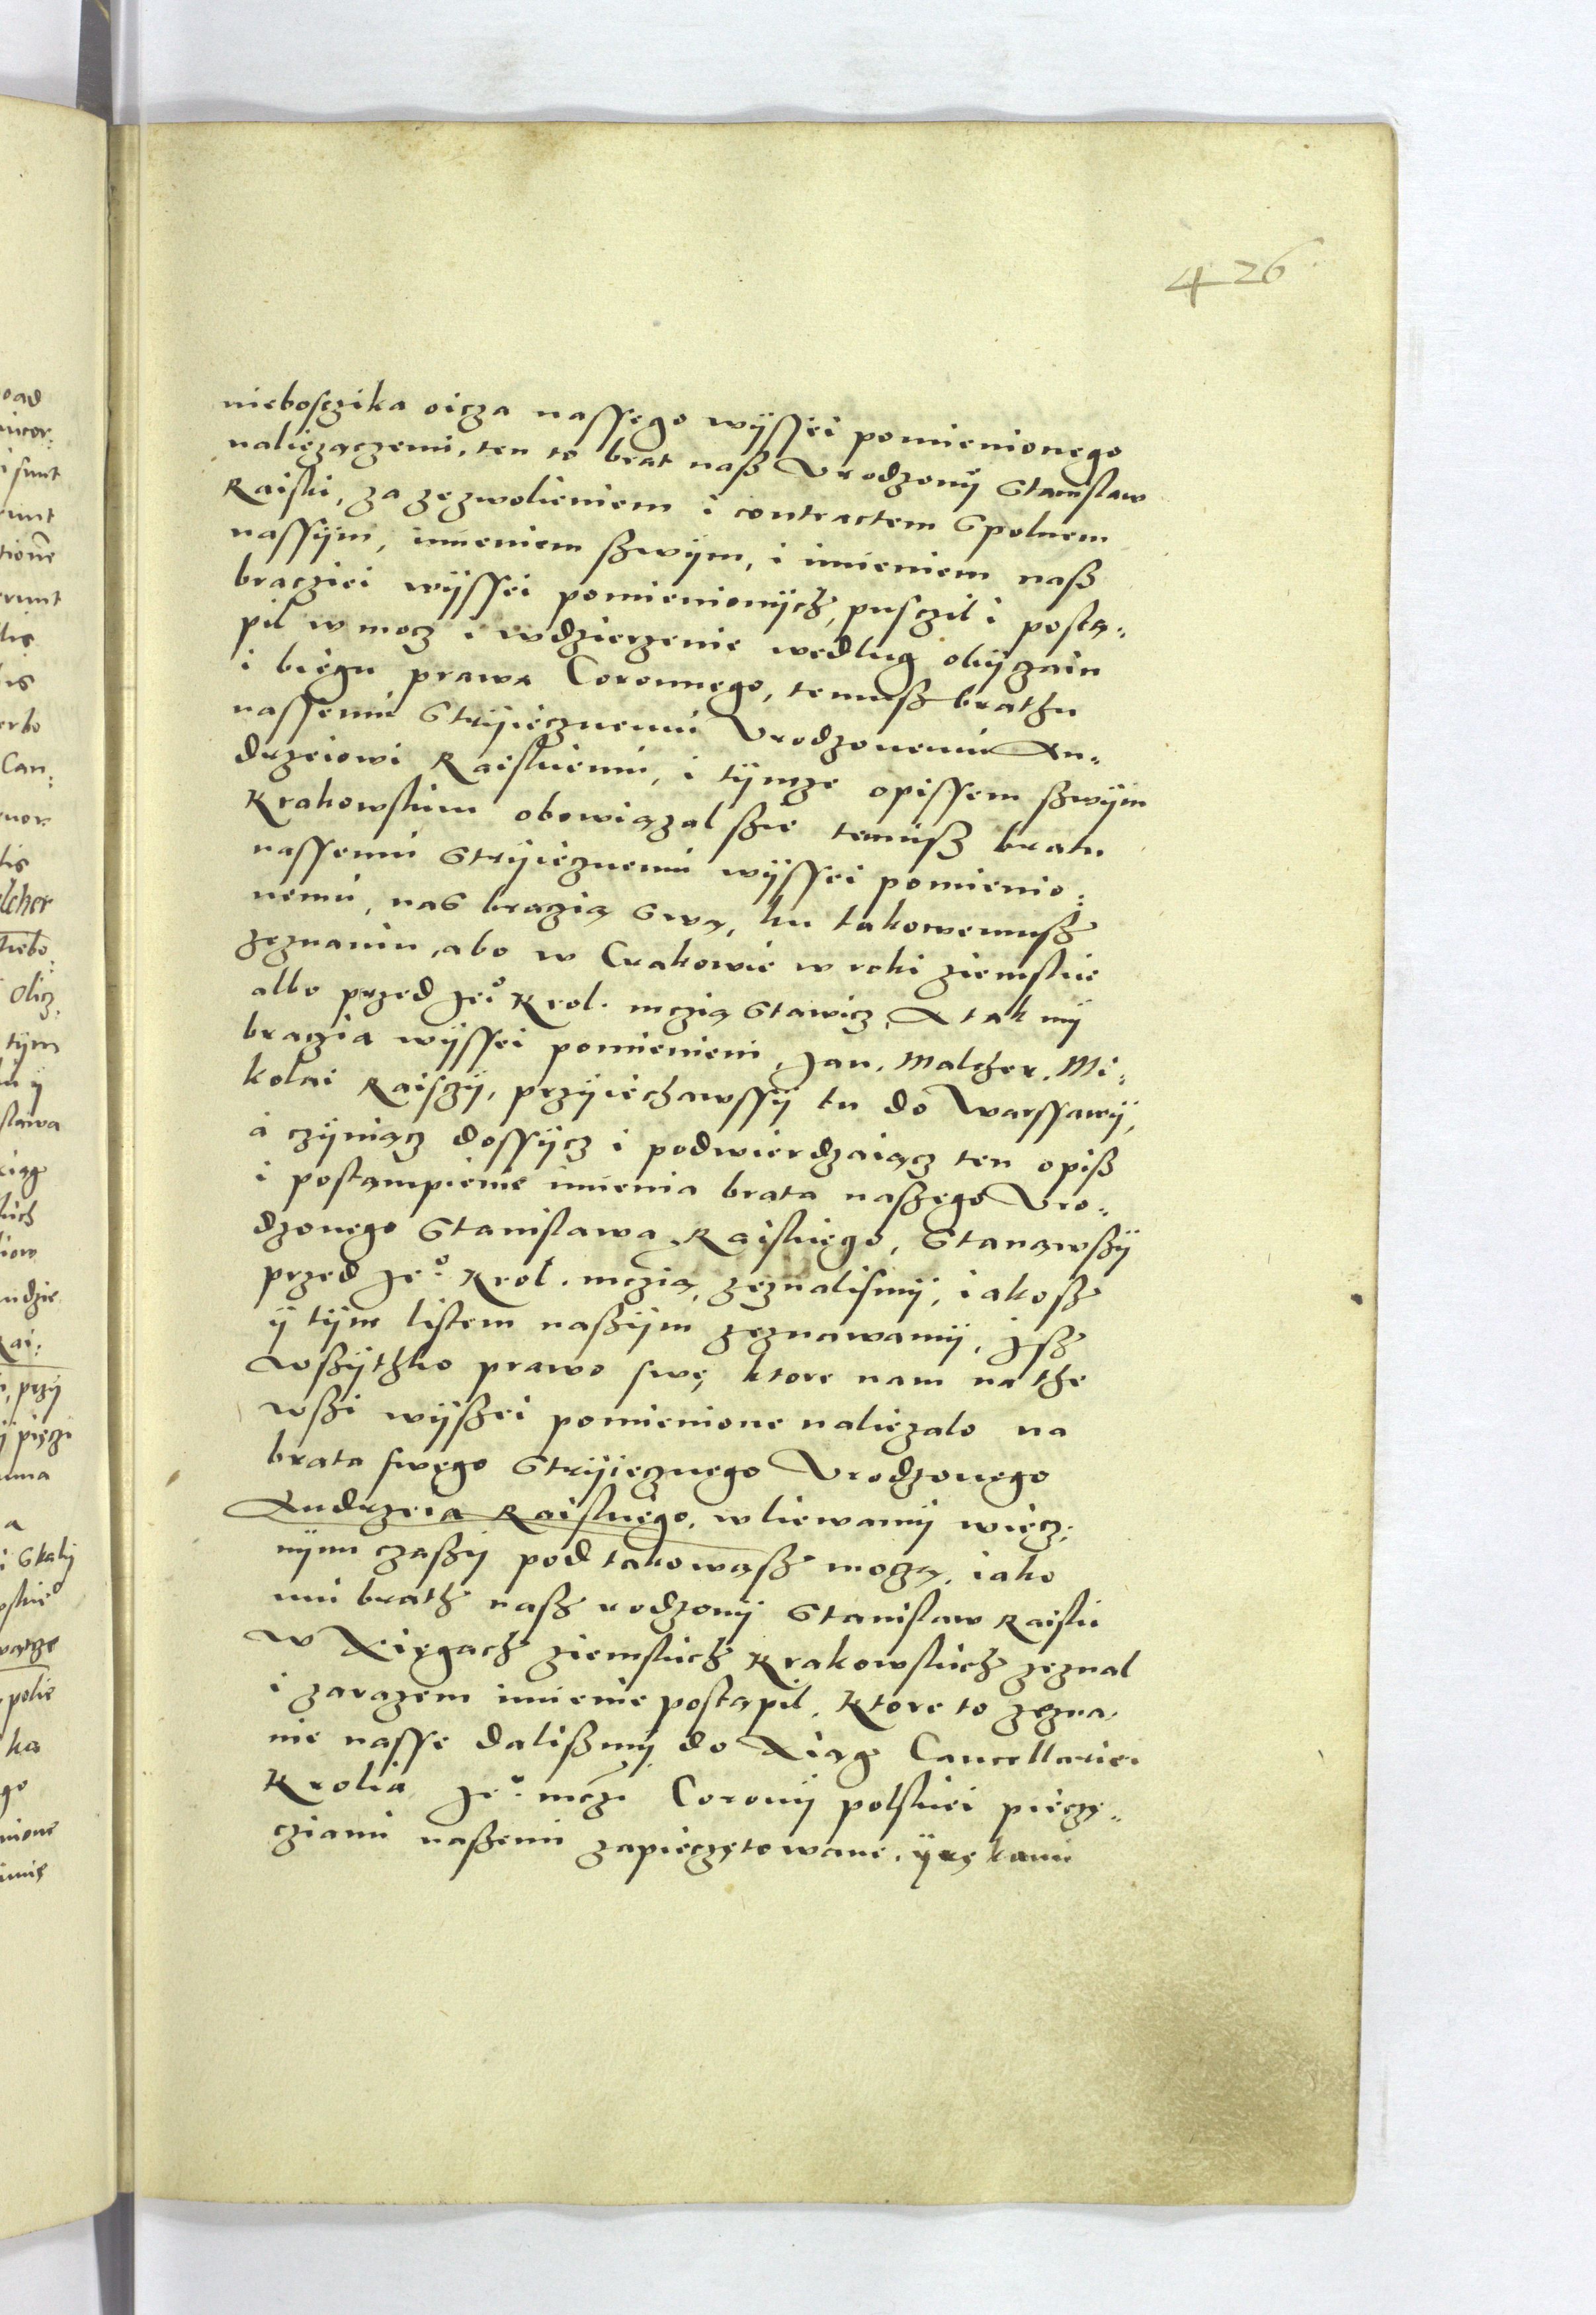 426
niebosczika oicza nassego wÿssei pomienionego
naliezączemi, ten to brat naß Vrodzonÿ Stanislaw
Raiski, za zezwolieniem i contractem spolnem
nassÿm, imieniem sßwÿm, i imieniem naß
bracziei wÿssei pomienionÿch, pusczil i postą„
pil w mocz i w dzierzenie wedlug obÿczaiu
i biegu prawa Coronnego, temusz brathu
nassemu Strÿiecznemu Vrodzonemu An„
drzeiowi Raiskiemu, i tÿmze opissem sßwÿm
Krakowskim obowiązal sßie temusz bratu
nassemu Strÿiecznemu wÿssei pomienio:
nemu, nas braczią swą, ku takowemusz
zeznaniu, abo w Crakowie w roki ziemskie
albo przed Jeº Krol. mczią stawicz, A tak mÿ
braczia wÿssei pomienieni, Jan, Malcher, Mi:
kolai Raisczÿ, przÿiechawssÿ tu do Warssawÿ,
a czÿniącz dossÿcz i podwierdzaiącz ten opiß
i postampienie imienia brata naszego Vro„
dzonego Stanislawa Raiskiego, Stanąwszÿ
przed Jeº Krol. mczią, zeznalismÿ, iakosz
ÿ tÿm listem naszÿm zeznawamÿ, Jsz
wszÿthko prawo swe, ktore nam na the
wszi wÿszei pomienione naliezalo na
brata swego Strÿiecznego Vrodzonego
Andrzeia Raiskiego, wliewamÿ wiecz:
nÿmi czaszÿ pod takowąsz moczą, iako
mi brath nasz rodzonÿ Stanislaw Raiski
w Xięgach ziemskich Krakowskich zeznal
i zarazem imienie postąpil, Ktore to zezna„
nie nasse daliszmÿ do Xiąg Cancellariei
Krolia Jeº mczi Coronÿ polskiei pieczę„
cziami naszemi zapieczętowane, ÿ rękami